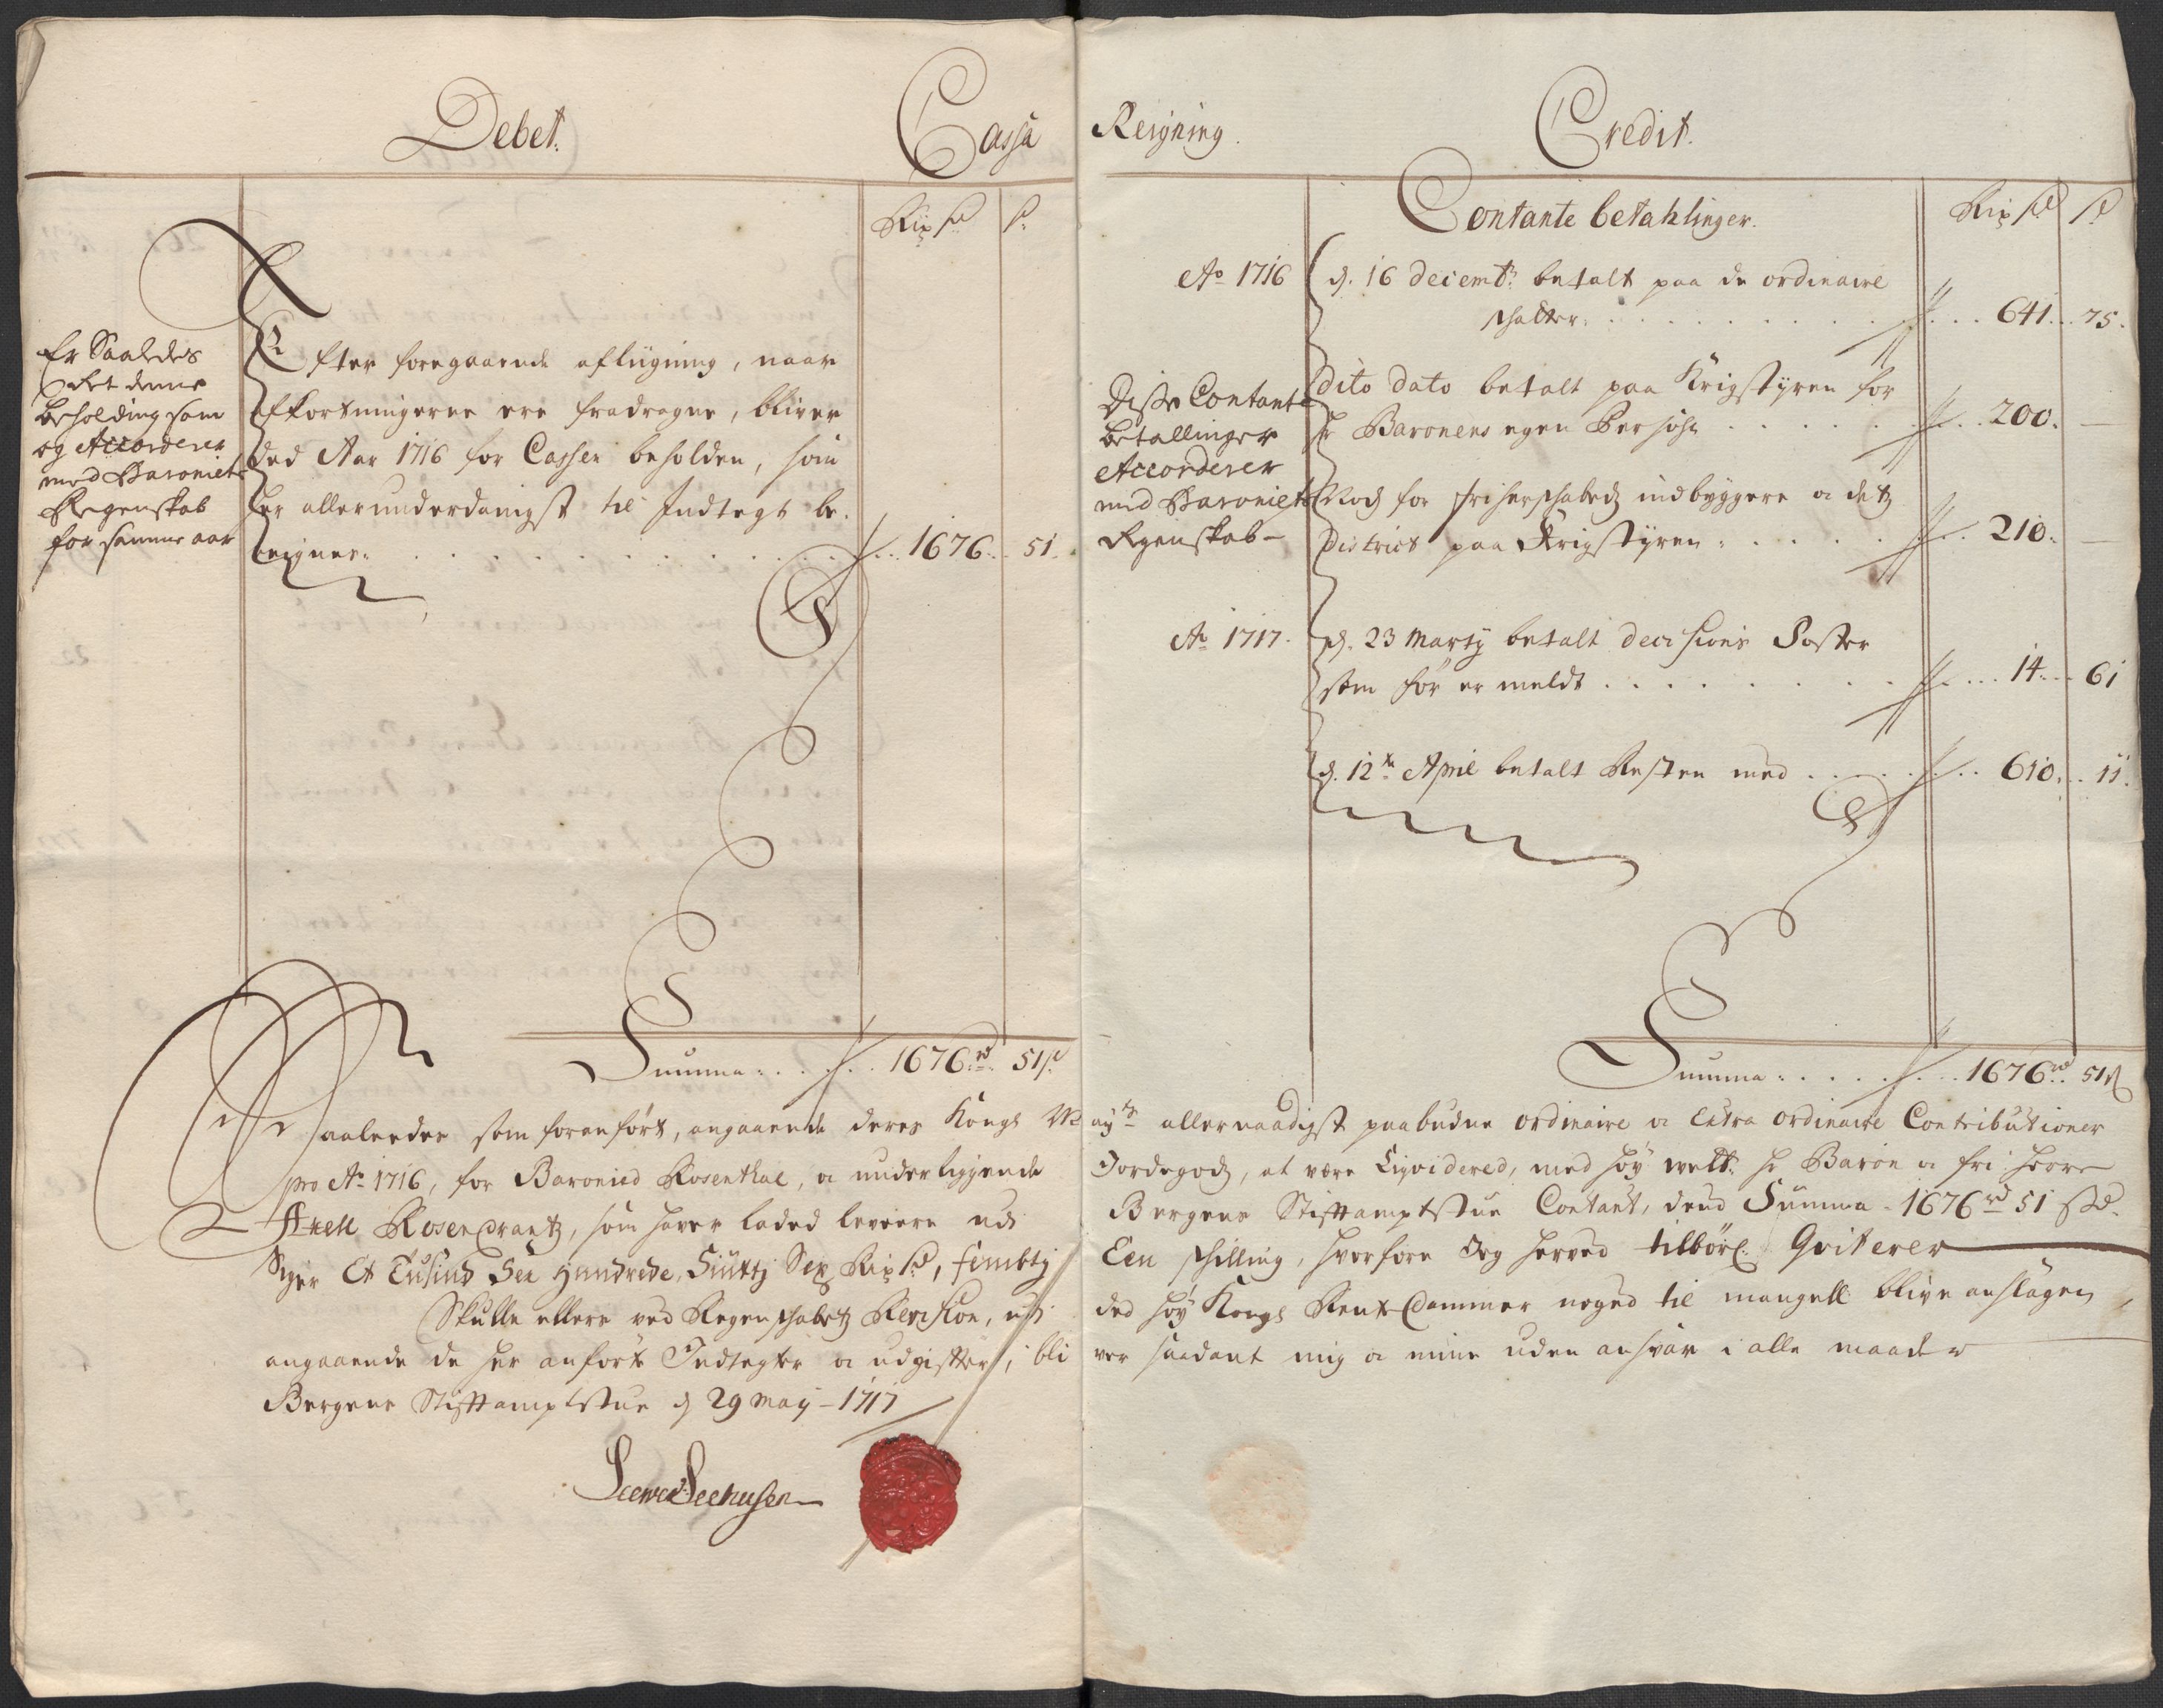 Debet.
Cassa
Rix d
s
Er Saaledes
det denne
beholding som
og Accorderer
med Baroniets
Regenskab
for samme aar
Efter foregaaende afligning, naar
Affkortningerne ere fradragne, bliver
ded Aar 1716 for Casser beholden, som
her allerunderdanigst til Indtegt be-
reignes: 1676 .. 51.
Summa: 1676 rd 51 s
Reigning.
Credit.
Contante betahlinger.
Rix d
s
Ao 1716
d. 16 decembr: betalt paa de ordinaire
skatter: 641 .. 75.
Disse Contante
betallinger
Accorderer
med Baroniets
Regenskab -
dito dato betalt paa Krigstyren for
hr Baronens egen Persohn 200. —
Nock for friherskabetz indbyggere oc detz
District paa Krigstyren: 210. —
Ao 1717.
d. 23 Marty betalt decisions Poster
som før er meldt 14 .. 61
d. 12te April betalt Resten med 610 .. 11.
Summa: 1676 rd 51 s
Saaleedes som foranført, angaaende deres Kongl May:ts allernaadigst paabudne ordinaire oc Extra ordinaire Contributioner
pro Ao 1716, for Baronied Rosenthal, oc underliggende Jordegodz, at være Liqvidered, med høy welb: hr Baron oc fri herre
Axell Rosencrantz, som haver laded levere udi Bergens Stifftamptstue Contant, dend Summa 1676 rd 51 s
Siger Et Tusind Sex Hundrede, Siuttj Sex Rix d, fembtj Een skilling, hvorfore Jeg herved tilbørl: Qviterer
Skulle ellers ved Regenskabetz Revision, udi ded høy Kongl Rente Cammer noged til mangell blive anslagen,
angaaende de her anførte Indtegter oc udgiffter, bliver saadant mig oc mine uden ansvar i alle maader
Bergens Stifftamptstue d 29 May - 1717
Seehusen